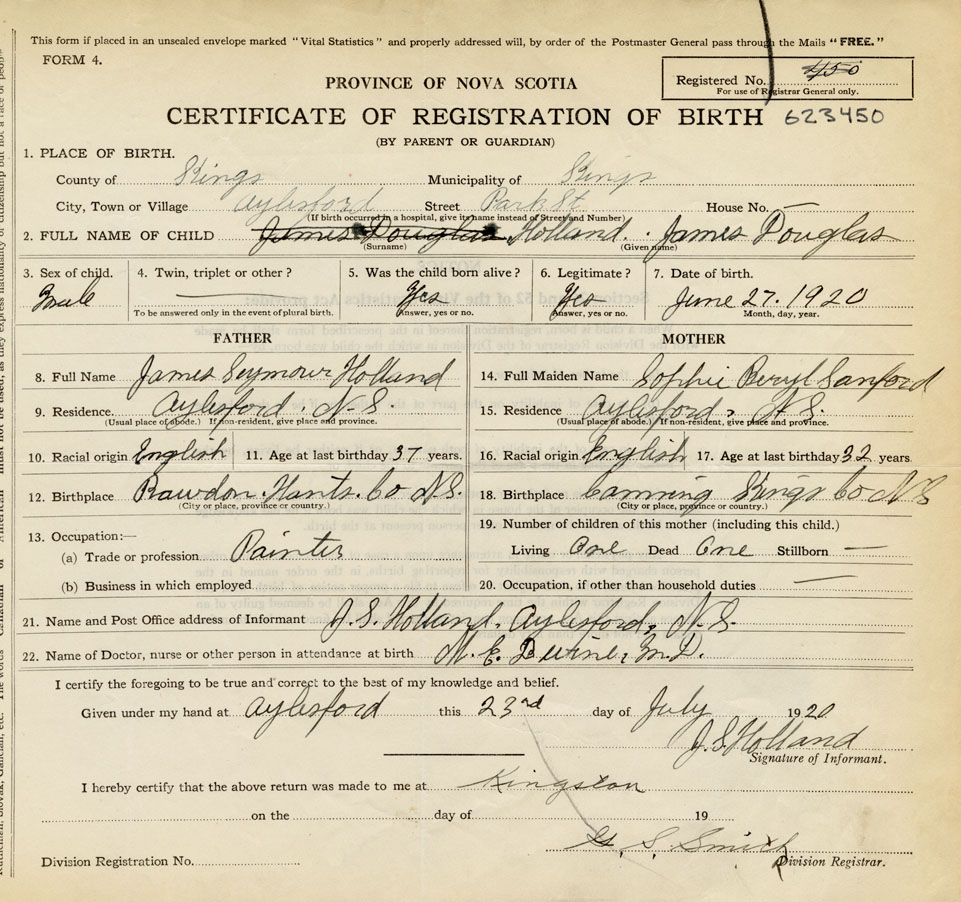 This form if placed in an unsealed envelope marked “Vital Statistics” and properly addressed will, by order of the Postmaster General pass through the Mails “FREE.”
FORM 4.
Registered No. 450
For use of Registrar General only.
PROVINCE OF NOVA SCOTIA
CERTIFICATE OF REGISTRATION OF BIRTH 623450
(BY PARENT OR GUARDIAN)
1. PLACE OF BIRTH.
County of Kings Municipality of Kings
City, Town or Village Aylesford Street Park St House No. —
(If birth occurred in a hospital, give its name instead of Street and Number)
2. FULL NAME OF CHILD James Douglas Holland. James Douglas
(Surname) (Given name)
3. Sex of child. 4. Twin, triplet or other? 5. Was the child born alive? 6. Legitimate? 7. Date of birth.
Male — Yes Yes June 27. 1920
To be answered only in the event of plural birth. Answer, yes or no. Answer, yes or no. Month, day, year.
FATHER
8. Full Name James Seymour Holland
9. Residence. Aylesford. N.S.
(Usual place of abode.) If non-resident, give place and province.
10. Racial origin English 11. Age at last birthday 37 years.
12. Birthplace Rawdon. Hants. Co N.S.
(City or place, province or country.)
13. Occupation:—
(a) Trade or profession Painter
(b) Business in which employed
MOTHER
14. Full Maiden Name Sophie Beryl Sanford
15. Residence Aylesford, N.S.
(Usual place of abode.) If non-resident, give place and province.
16. Racial origin English 17. Age at last birthday 32 years.
18. Birthplace Canning Kings Co N S
(City or place, province or country.)
19. Number of children of this mother (including this child.)
Living One Dead One Stillborn —
20. Occupation, if other than household duties —
21. Name and Post Office address of Informant J.S. Holland. Aylesford, N.S.
22. Name of Doctor, nurse or other person in attendance at birth M. E. M.D.
I certify the foregoing to be true and correct to the best of my knowledge and belief.
Given under my hand at Aylesford this 23rd day of July 1920
J.S. Holland
Signature of Informant.
I hereby certify that the above return was made to me at Kingston
on the day of 19
S. Smith
Division Registration No. Division Registrar.